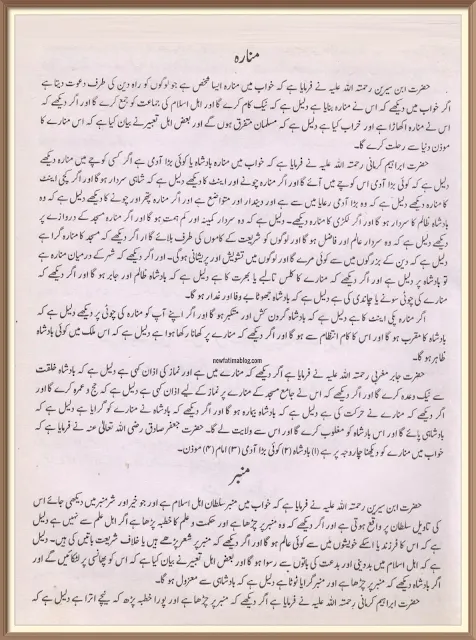 منارہ
حضرت ابن سیرین رحمتہ اللہ علیہ نے فرمایا ہے کہ خواب میں منارہ ایسا شخص ہے جو لوگوں کو راہ دین کی طرف دعوت دیتا ہے
اگر خواب میں دیکھے کہ اس نے منارہ بنایا ہے دلیل ہے کہ نیک کام کرے گا اور اہل اسلام کی جماعت کو جمع کرے گا اور اگر دیکھے کہ
اس نے منارہ اکھاڑا ہے اور خراب کیا ہے دلیل ہے کہ مسلمان متفرق ہوں گے اور بعض اہل تعبیر نے بیان کیا ہے کہ اس منارے کا
موذن دنیا سے رحلت کرے گا۔
حضرت ابراہیم کرمانی رحمتہ اللہ علیہ نے فرمایا ہے کہ خواب میں منارہ بادشاہ یا کوئی بڑا آدمی ہے اگر کسی کوچے میں منارہ دیکھے
دلیل ہے کہ کوئی بڑا آدمی اس کوچے میں آئے گا اور اگر منارہ چونے اور اینٹ کا دیکھے دلیل ہے کہ شاہی سردار ہو گا اور اگر کچی اینٹ
کا منارہ دیکھے دلیل ہے کہ وہ بڑا آدمی رعایا میں سے ہے اور دیندار اور متواضع ہے اور اگر منارہ پتھر اور چونے کا دیکھے دلیل ہے کہ وہ
بادشاہ ظالم کا سردار ہو گا اور اگر لکڑی کا منارہ دیکھے۔ دلیل ہے کہ وہ سردار کمینہ اور کم ہمت ہو گا اور اگر منارہ مسجد کے دروازے پر
دیکھے دلیل ہے کہ وہ سردار عالم اور فاضل ہو گا اور لوگوں کو شریعت کے کاموں کی طرف بلائے گا اور اگر دیکھے کہ مسجد کا منارہ گرا ہے
دلیل ہے کہ دین کے بزرگوں میں سے کوئی مرے گا اور لوگوں میں تشویش اور پریشانی ہوگی۔ اور اگر دیکھے کہ شہر کے درمیان منارہ ہے
تو بادشاہ پر دلیل ہے اور اگر دیکھے کہ منارے کا کلس تانبے یا بھرت کا ہے دلیل ہے کہ بادشاہ ظالم اور جابر ہو گا اور اگر دیکھے کہ
منارے کی چوٹی سونے یا چاندی کی ہے دلیل ہے کہ بادشاہ جھوٹا بے وفا اور غدار ہو گا۔
اگر منارہ پکی اینٹ کا ہے دلیل ہے کہ بادشاہ گردن کش اور متکبر ہو گا اور اگر اپنے آپ کو منارہ کی چوٹی پر دیکھے دلیل ہے کہ
بادشاہ کا مقرب ہو گا اور اس کا کام انتظام سے ہو گا اور اگر دیکھے کہ منارے پر کھانا رکھا ہوا ہے دلیل ہے کہ اس ملک میں کوئی بادشاہ
ظاہر ہو گا۔
nowfatimablog.com
حضرت جابر مغربی رحمتہ اللہ علیہ نے فرمایا ہے اگر دیکھے کہ منارے میں ہے اور نماز کی اذان کہی ہے دلیل ہے کہ بادشاہ خلقت
سے نیک وعدہ کرے گا اور اگر دیکھے کہ اس نے جامع مسجد کے منارے پر نماز کے لیے اذان کہی ہے دلیل ہے کہ حج و عمرہ کرے گا اور
اگر دیکھے کہ منارے نے حرکت کی ہے دلیل ہے کہ بادشاہ بیمار ہو گا اور اگر دیکھے کہ بادشاہ نے منارے کو گرایا ہے دلیل ہے کہ
بادشاہی پائے گا اور اس بادشاہ کو مغلوب کرے گا اور اس سے ولایت لے گا۔ حضرت جعفر صادق رضی اللہ تعالی عنہ نے فرمایا ہے کہ
خواب میں منارے کو دیکھنا چار وجہ پر ہے (۱) بادشاہ (۲) کوئی بڑا آدمی (۳) امام (۴) موذن۔
منبر
حضرت ابن سیرین رحمتہ اللہ علیہ نے فرمایا ہے کہ خواب میں منبر سلطان اہل اسلام ہے اور جو خیر اور شر منبر میں دیکھی جائے اس
کی تاویل سلطان پر واقع ہوتی ہے اور اگر دیکھے کہ وہ منبر پر چڑھا ہے اور حکمت و علم کا خطبہ پڑھا ہے اگر اہل علم سے نہیں ہے دلیل
ہے کہ اس کا فرزند یا اسکے خویشوں میں سے کوئی عالم ہو گا اور اگر دیکھے کہ منبر پر شعر پڑھے ہیں یا خلاف شریعت باتیں کی ہیں۔ دلیل
ہے کہ اہل اسلام میں بددینی اور بدعت کی باتوں سے رسوا ہو گا اور بعض اہل تعبیر نے بیان کیا ہے کہ اس کو پھانسی پر لٹکائیں گے اور
اگر بادشاہ دیکھے کہ منبر پر چڑھا ہے اور منبر گرا یا ٹوٹا ہے دلیل ہے کہ بادشاہی سے معزول ہو گا۔
حضرت ابراہیم کرمانی رحمتہ اللہ علیہ نے فرمایا ہے اگر دیکھے کہ منبر پر چڑھا ہے اور پورا خطبہ پڑھ کہ نیچے اترا ہے دلیل ہے کہ